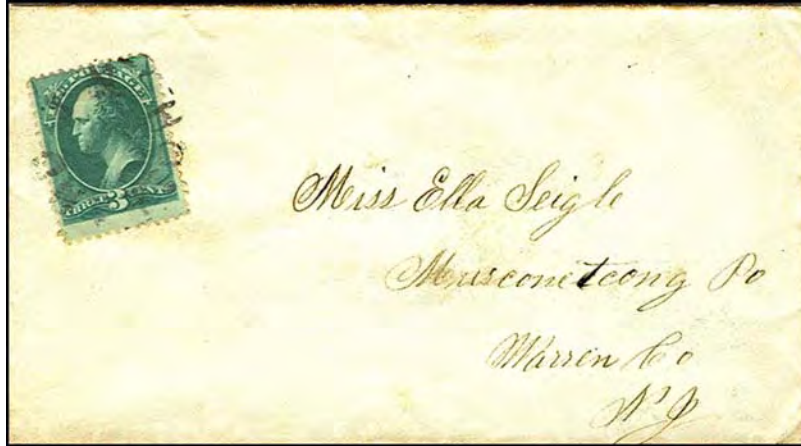 U.S. POSTAGE
THREE 3 CENTS
Miss Ella Seigle
Musconetcong Po
Warren Co
N J